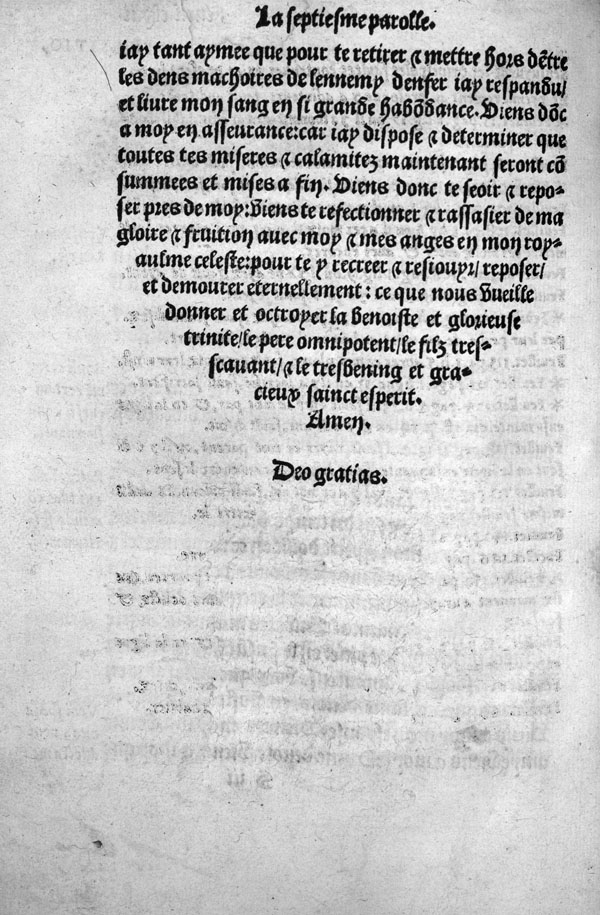 La septiesme parolle.
iay tant aymee que pour te retirer ⁊ mettre hors dẽtre
les dens machoires de lennemy denfer iay respandu/
et liure mon sang en si grande habõdance. Viens dõc
a moy en asseurance: car iay dispose ⁊ determiner que
toutes tes miseres ⁊ calamitez maintenant seront cõ
summees et mises a fin. Viens donc te seoir ⁊ repo-
ser pres de moy: Viens te refectionner ⁊ rassasier de ma
gloire ⁊ fruition avec moy ⁊ mes anges en mon roy-
aulme celeste: pour te y recreer ⁊ resiouyr/ reposer/
et demourer eternellement: ce que nous Vueille
donner et octroyer la benoiste et glorieuse
trinite/ le pere omnipotent/ le filz tres-
scauant/ ⁊ le tresbening et gra-
cieux sainct esperit.
Amen.
Deo gratias.